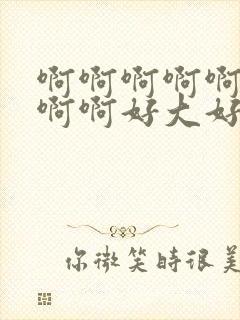 啊啊啊啊啊
啊啊好大好
你微笑时很美